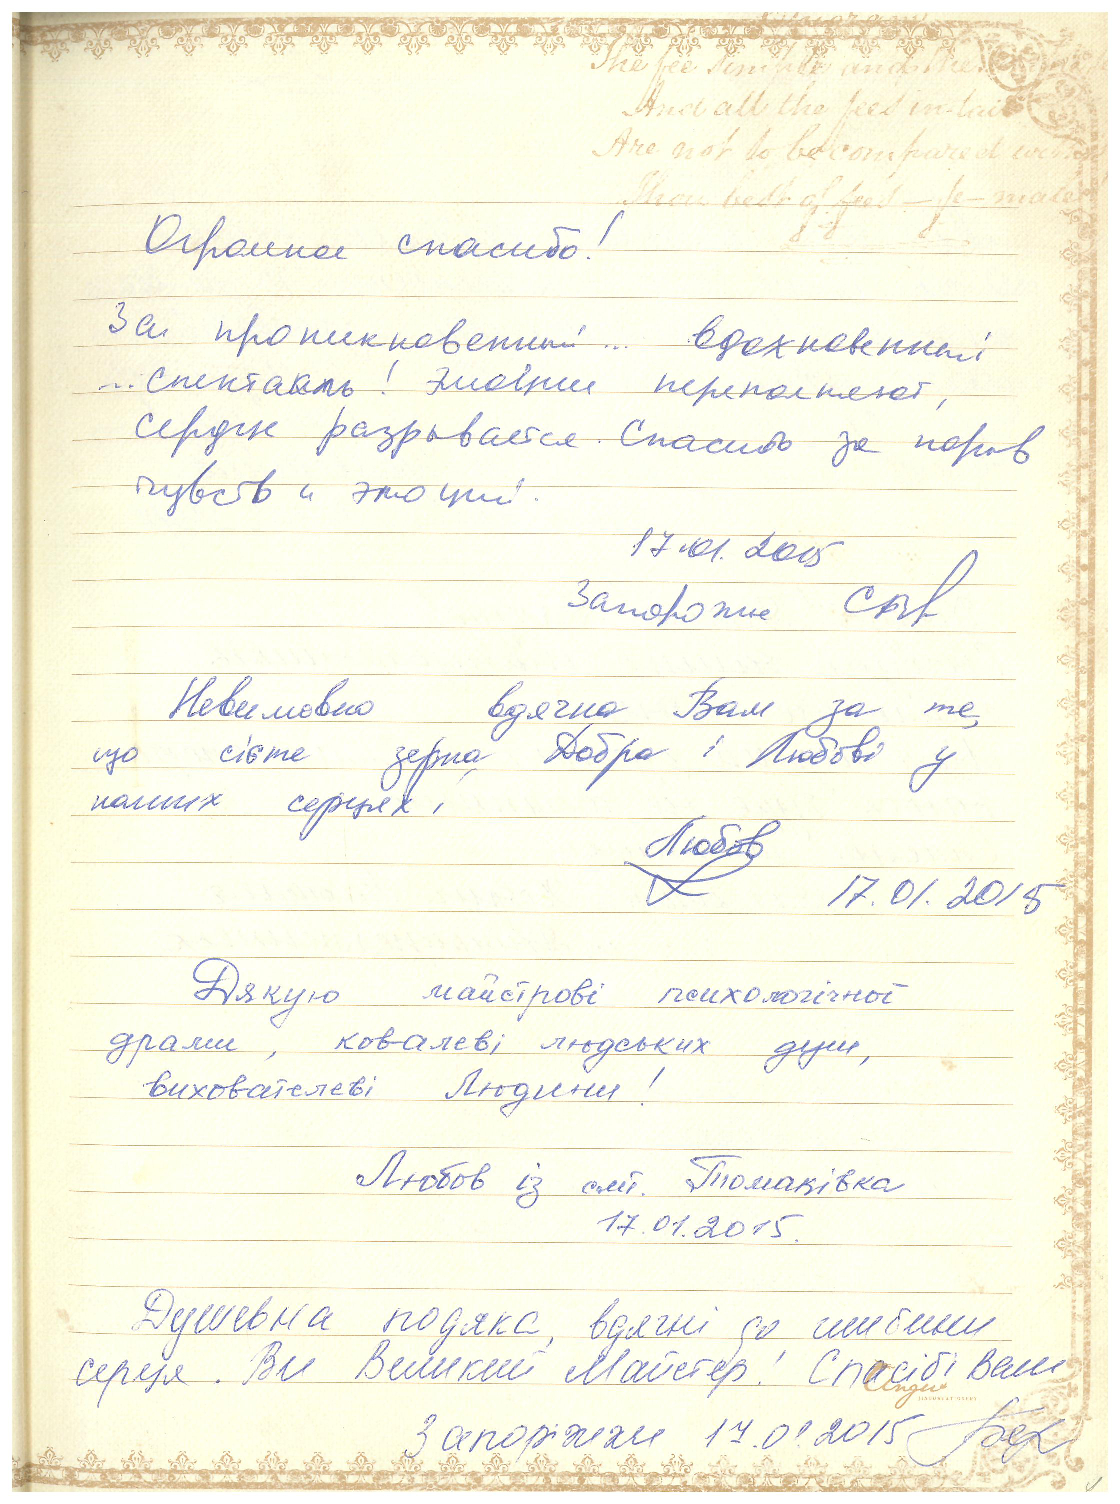 The fee simple and the
And all the fees in tail
Are not to be compared with
Thou best of fees – fe – male
Огромное спасибо!
За проникновенный ... вдохновенный
... спектакль! Эмоции переполняют,
сердце разрывается. Спасибо за порыв
чувств и эмоций.
17.01.2015
Запорожье
Невимовно вдячна Вам за те,
що сієте зерна Добра і Любові у
наших серцях!
Любов
17.01.2015
Дякую майстрові психологічної
драми, ковалеві людських душ,
вихователеві Людини!
Любов із смт. Томаківка
17.01.2015.
Душевна подяка, вдячні до глибини
серця. Ви Великий Майстер! Спасибі Вам
Запоріжжя 17.01.2015